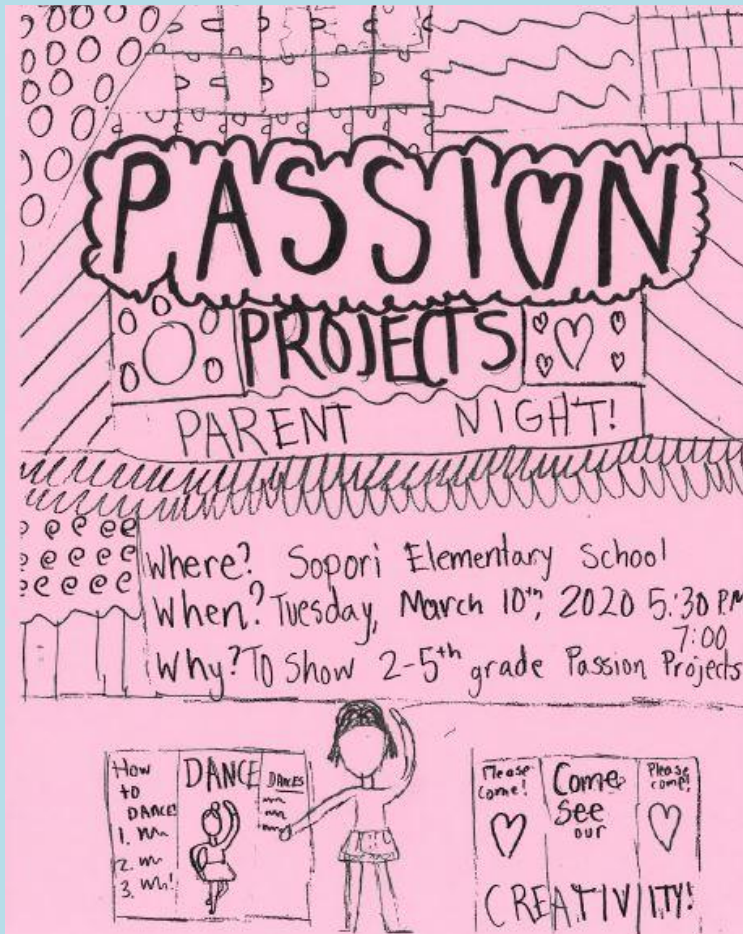 PASSION
PROJECTS
PARENT NIGHT!
Where? Sopori Elementary School
When? Tuesday, March 10th, 2020 5:30 P.M
7:00
Why? To Show 2-5th grade Passion Projects
How
to
DANCE
1.
2.
3. !
DANCE
DANCES
Please
Come!
Come
See
our
Please
come!
CREATIVITY!